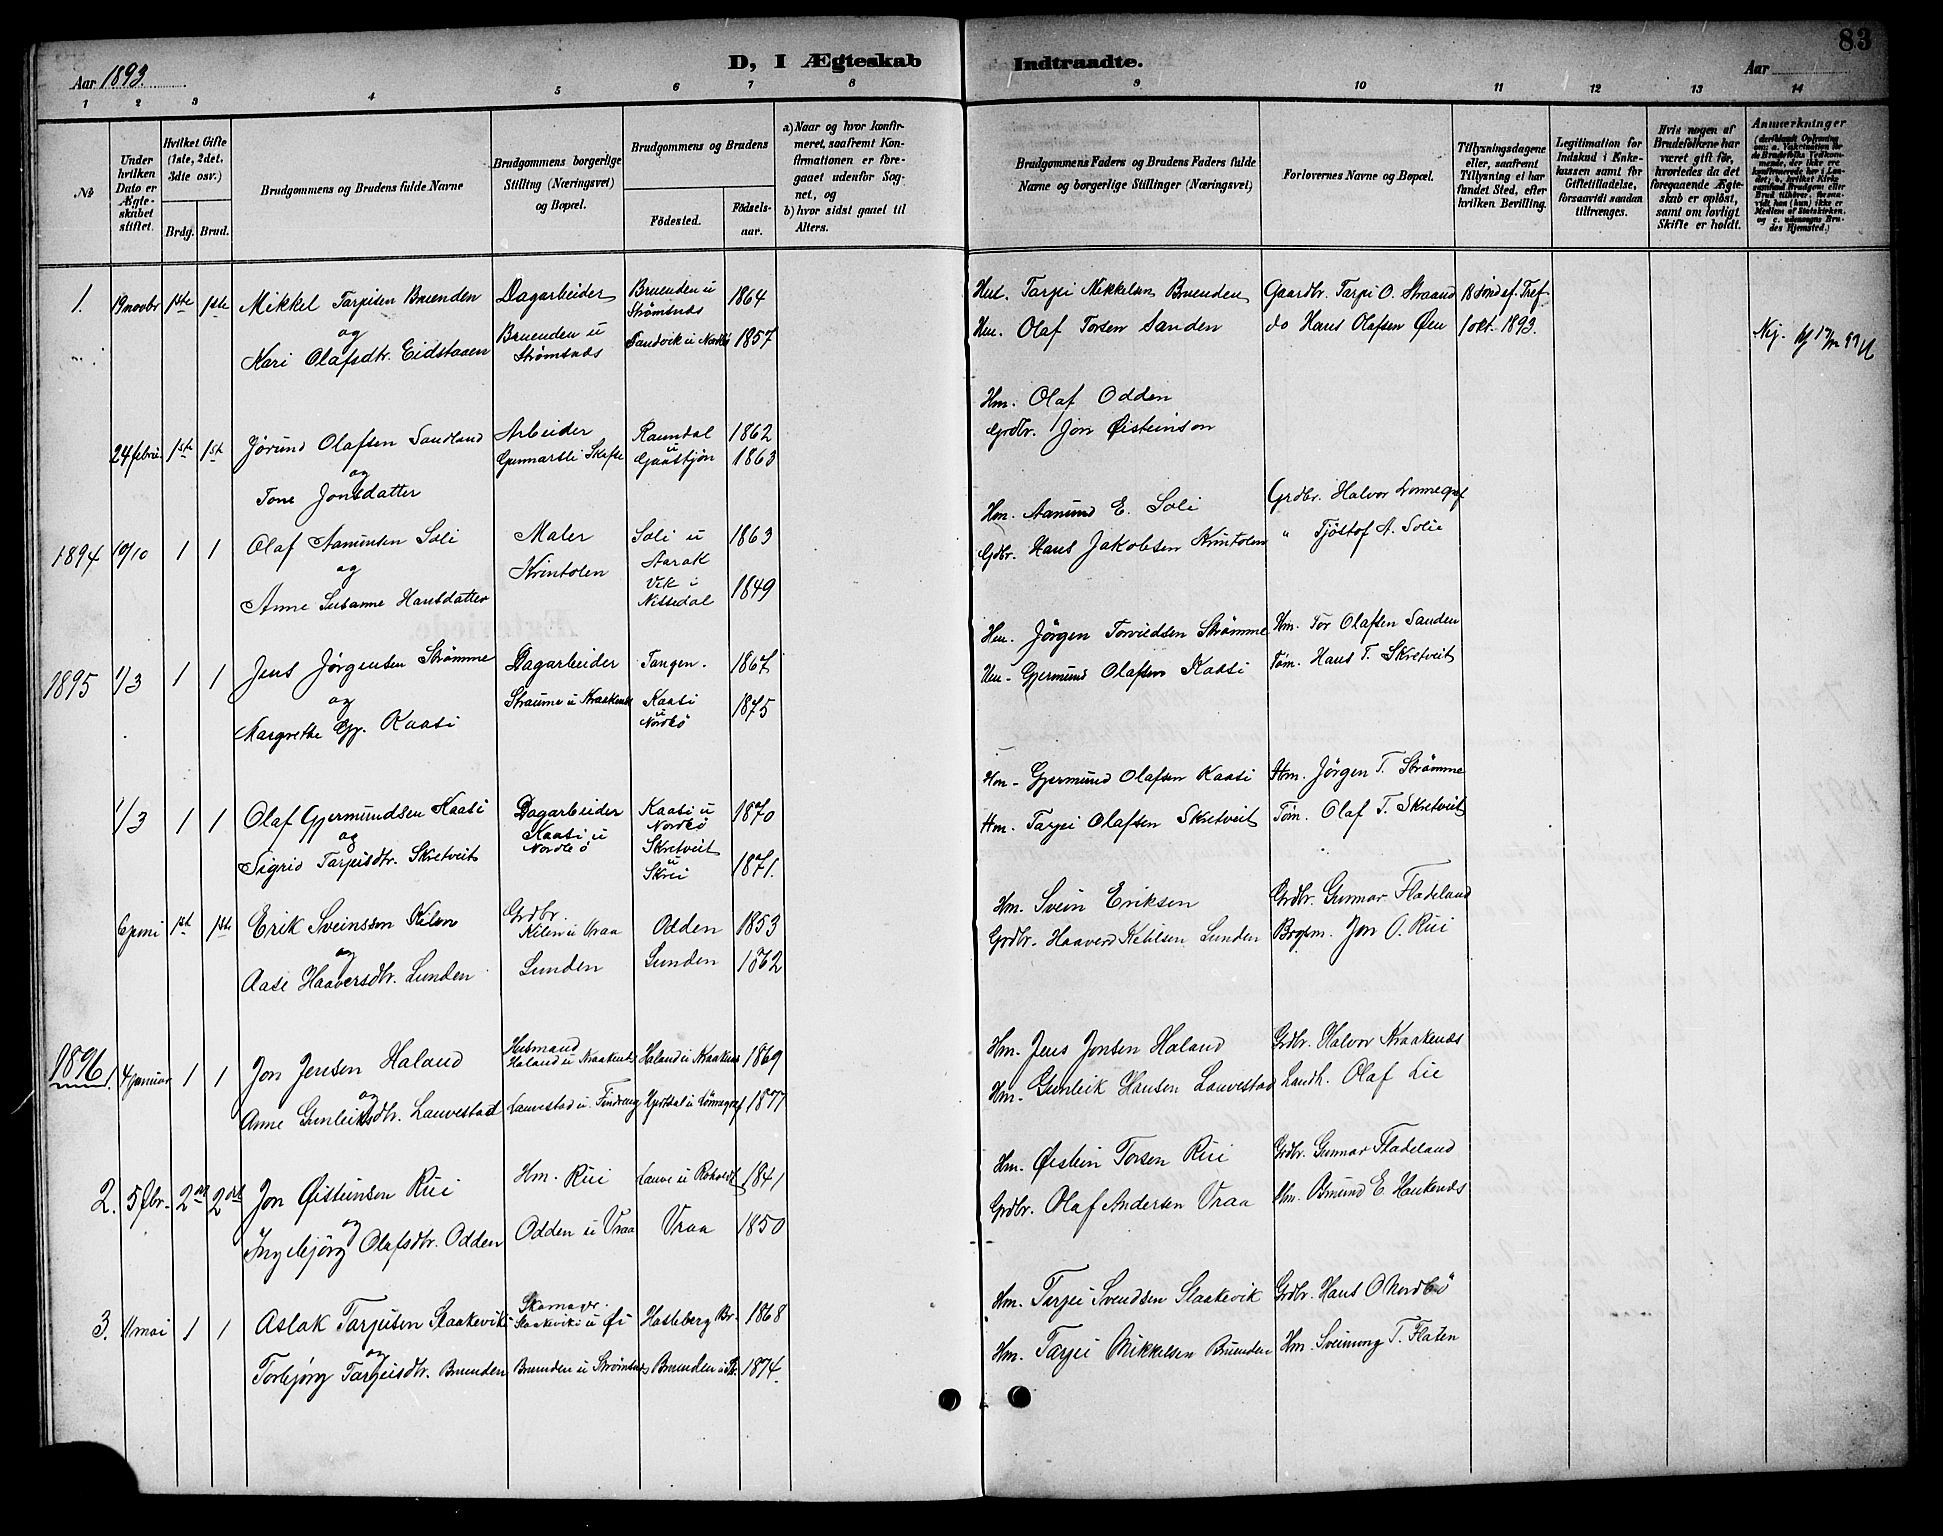 83
Aar 1893.
D, I Ægteskab Indtraadte.
Aar
1 2 3 4 5 6 7 8 9 10 11 12 13 14
№
Under hvilken Dato er Ægteskabet stiftet.
Hvilket Gifte (1ste, 2det. 3dte osv.)
Brdg. Brud.
Brudgommens og Brudens fulde Navne
Brudgommens borgerlige Stilling (Næringsvei) og Bopæl.
Brudgommens og Brudens
Fødested.
Fødselsaar.
a) Naar og hvor konfirmeret, saafremt Konfirmationen er foregaaet udenfor Sognet, og
b) hvor sidst gaaet til Alters.
Brudgommens Faders og Brudens Faders fulde Navne og borgerlige Stillinger (Næringsvei)
Forlovernes Navne og Bopæl.
Tillysningsdagene eller, saafremt Tillysning ei har fundet Sted, efter hvilken Bevilling.
Legitimation for Indskud i Enkekassen samt for Giftetilladelse, forsaavidt saadan tiltrænges.
Hvis nogen af Brudefolkene har været gift før, hvorledes da det foregaaende Ægteskab er opløst, samt om lovligt Skifte er holdt.
Anmærkninger
1. 19 novbr 1ste 1ste Mikkel Tarjeisen Bruenden Dagarbeider Bruenden u Strømsnds 1864 Hm. Tarjei Mikkelsen Bruenden Gaardbr. Tarjei O. Straand
og Bruenden u Strømsnds
Kari Olafsdtr. Eidstaaen Sandvik u Nordbø 1857 Hm. Olaf Torsen Sanden do Hans Olafsen Øen 1 okt. 1893.
Nej.
24 febru. 1ste 1ste Jørund Olafsen Sandland Arbeider Raundal 1862 Hm. Olaf Odden
og Gunnarsli Skafse u
Tone Jonsdatter Gaustjøn 1863 Grdbr. Jon Øisteinson
1894 10/10 1 1 Olaf Aamunsen Soli Maler Soli u Aarak 1863 Hm. Aamund E. Soli Grdbr. Halvor Lønnegraf
og Krintolen
Anne Susanne Hansdatter Vik i Nissedal 1849 Gdbr. Hans Jakobsen Krintolen " Tjøstof A. Solie
1895 1/3 1 1 Jens Jørgensen Strømme Dagarbeider Tangen. 1867 Hm. Jørgen Torvildsen Strømme Hm. Tor Olafsen Sanden
og Straume u Kraakenes
Margrethe Gj. Kaasi Kaasi u Nordbø 1875 Hm. Gjermund Olafsen Kaasi Tøm. Hans T. Skretveit
1/3 1 1 Olaf Gjermundsen Kaasi Dagarbeider Kaasi u Nordbø 1870 Hm. Gjermund Olafsen Kaasi Hm. Jørgen T. Strømme
og Kaasi u Nordbø
Sigrid Tarjeisdtr. Skretveit Skretveit u Skrei 1871. Hm. Tarjei Olafsen Skretveit Tøm. Olaf T. Skretveit
6 juni 1ste 1ste Erik Sveinsson Kilen Grdbr. Kilen u Vraa Odden 1853 Hm. Svein Eriksen Grdbr. Gunnar Fladeland
og
Aase Haaversdtr. Lunden Lunden Lunden 1862 Grdbr. Haaverd Ketilsen Lunden Brgsm. Jon O. Rui
1896 1. 4 januar 1 1 Jon Jensen Haland Husmand Haland u Kraakenes Haland u Kraakenes 1869 Hm. Jens Jonsen Haland Grdbr. Halvor Kraakenes
og
Anne Gunleiksdtr. Lauvestad Lauvestad u. Findreng Hjertdal u Lønnegraf 1877 Hm. Gunleik Hansen Lauvestad Landh. Olaf Lie
2. 5 fbr. 2den 2det Jon Øisteinsen Rui Hm. Rui Lauve u Roholdt 1841 Hm. Øistein Torsen Rui Grdbr. Gunnar Fladeland
og
Ingebjørg Olafsdtr. Odden Odden u Vraa Vraa 1850 Grdbr. Olaf Andersen Vraa Hm. Osmund E. Haukenes
3. 11 mai 1 1 Aslak Tarjeisen Slaakevik Skomager. Slaakevik u Øi Hasleberg Br. 1868 Hm. Tarjei Svendsen Slaakevik Grdbr. Hans O Nordbø
og
Torbjørg Tarjeisdtr. Bruenden Bruenden u Strømsnds Bruenden u Str. 1874. Hm. Tarjei Mikkelsen Bruenden Hm. Sveinung T. Flaten